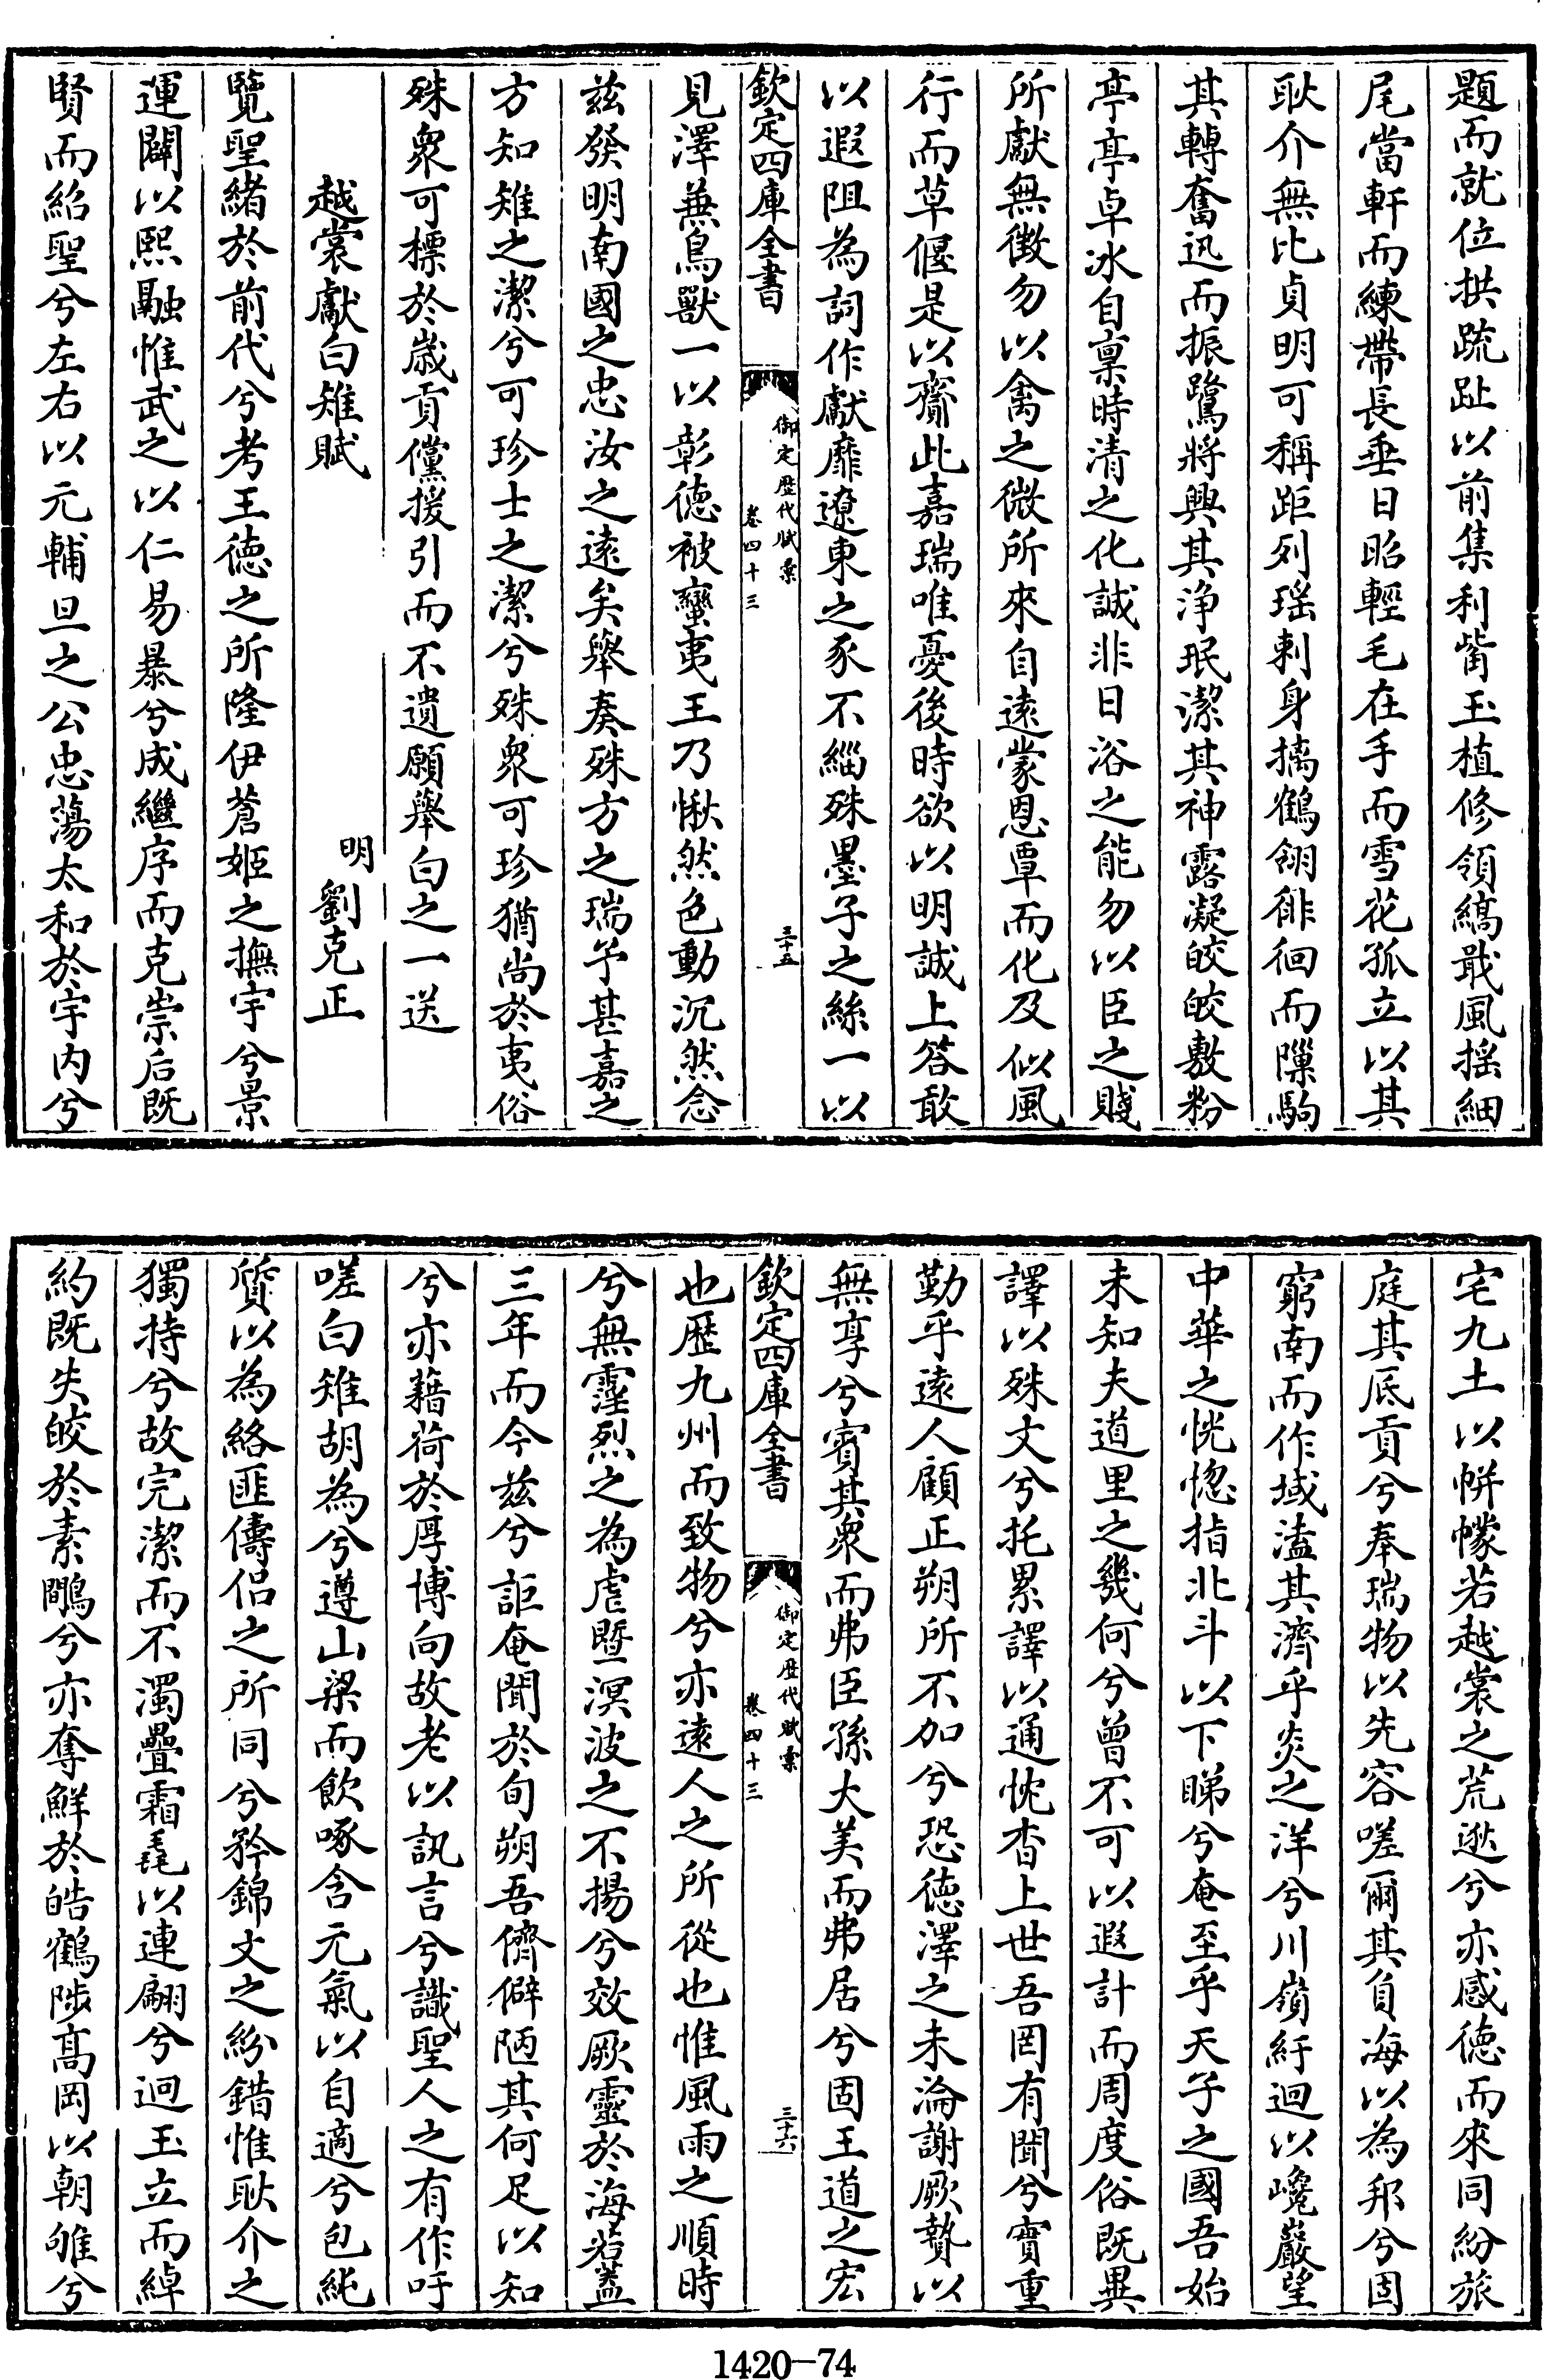 題而就位拱䟽趾以前集利觜玉植修領縞戢風揺細
尾當軒而練帶長垂日昭輕毛在手而雪花孤立以其
耿介無比貞明可稱距列瑶剌身摛鶴翎徘徊而隟駒
其轉奮迅而振鷺將興其淨珉潔其神露凝皎皎敷粉
亭亭卓冰自稟時清之化誠非日浴之能勿以臣之賤
所獻無徴勿以禽之微所來自逺蒙恩覃而化及似風
行而草偃是以齎此嘉瑞唯憂後時欲以明誠上答敢
以遐阻為詞作獻靡遼東之豕不緇殊墨子之絲一以
欽定四庫全書
御定歴代賦彙
卷四十三
三十五
見澤兼鳥獸一以彰徳被蠻夷王乃愀然色動沉然念
兹發明南國之忠汝之逺矣舉奏殊方之瑞予甚嘉之
方知雉之潔兮可珍士之潔兮殊衆可珍猶尚於夷俗
殊衆可標於嵗貢儻援引而不遺願舉白之一送
越裳獻白雉賦
明 劉克正
覽聖緒於前代兮考王徳之所隆伊蒼姬之撫宇兮景
運闢以熙融惟武之以仁易暴兮成繼序而克崇后既
賢而紹聖兮左右以元輔旦之公忠蕩太和於宇内兮
宅九土以帡幪若越裳之荒逖兮亦感徳而來同紛旅
庭其厎貢兮奉瑞物以先容嗟爾其負海以為邦兮固
窮南而作域溘其濟乎炎之洋兮川嶺紆迴以巉巖望
中華之恍惚指北斗以下睇兮奄至乎天子之國吾始
未知夫道里之幾何兮曾不可以遐計而周度俗既異
譯以殊文兮托累譯以通忱杳上世吾罔有聞兮實重
勤乎逺人顧正朔所不加兮恐徳澤之未淪謝厥贄以
無享兮賓其衆而弗臣孫大美而弗居兮固王道之宏
欽定四庫全書
御定歴代賦彙
卷四十三
三十六
也歴九州而致物兮亦逺人之所從也惟風雨之順時
兮無霪烈之為虐暨溟波之不揚兮效厥靈於海若葢
三年而今兹兮詎奄聞於旬朔吾儕僻陋其何足以知
兮亦藉荷於厚博向故老以訊言兮識聖人之有作吁
嗟白雉胡為兮遵山梁而飲啄含元氣以自適兮包純
質以為絡匪儔侣之所同兮矜錦文之紛錯惟耿介之
獨持兮故完潔而不濁疊霜毳以連翩兮迴玉立而綽
約既失皎於素鷴兮亦奪鮮於皓鶴陟髙岡以朝雊兮
1420—74